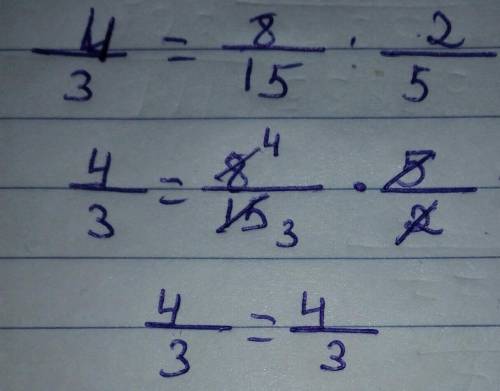 4/3 = 8/15 : 2/5
4/3 = 8 4/15 3 · 5/2
4/3 = 4/3